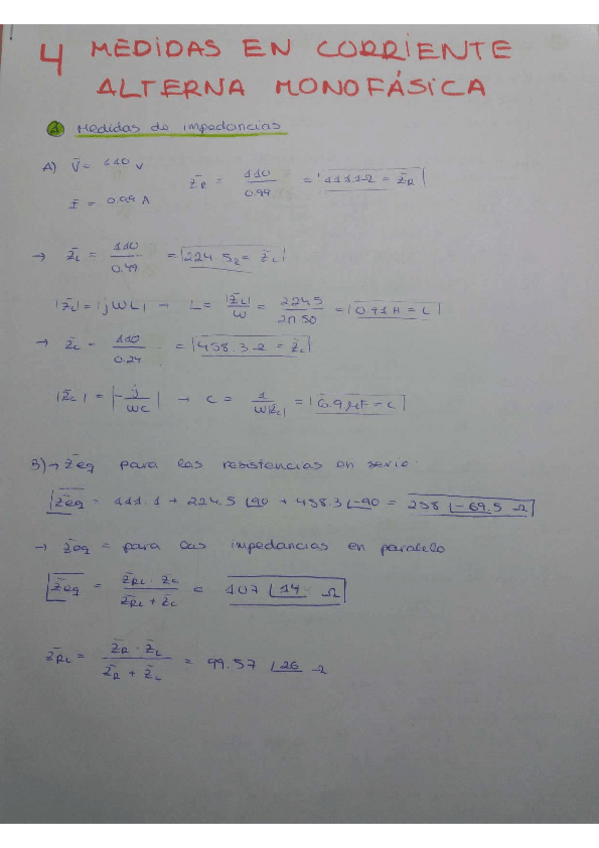 4 MEDIDAS EN CORRIENTE
ALTERNA MONOFÁSICA
1 Medidas de impedancias
A) V̄ = 110 V
Z̄R = 110/0.99 = 111.1 Ω = Z̄R
Ī = 0.99 A
→ Z̄L = 110/0.49 = 224.5 Ω = Z̄L
|Z̄L| = |jWL| → L = |Z̄L|/W = 224.5/2π50 = 0.71 H = L
→ Z̄c = 110/0.24 = 458.3 Ω = Z̄c
|Z̄c| = |-j/WC| → C = 1/W|Z̄c| = 6.9 μF = C
B) → Z̄eq para las resistencias en serie:
Z̄eq = 111.1 + 224.5 ∠90 + 458.3 ∠-90 = 258 ∠-69.5 Ω
→ Z̄eq = para las impedancias en paralelo
Z̄eq = Z̄RL · Z̄c / Z̄RL + Z̄c = 107 ∠14 Ω
Z̄RL = Z̄R · Z̄L / Z̄R + Z̄L = 99.57 ∠26 Ω